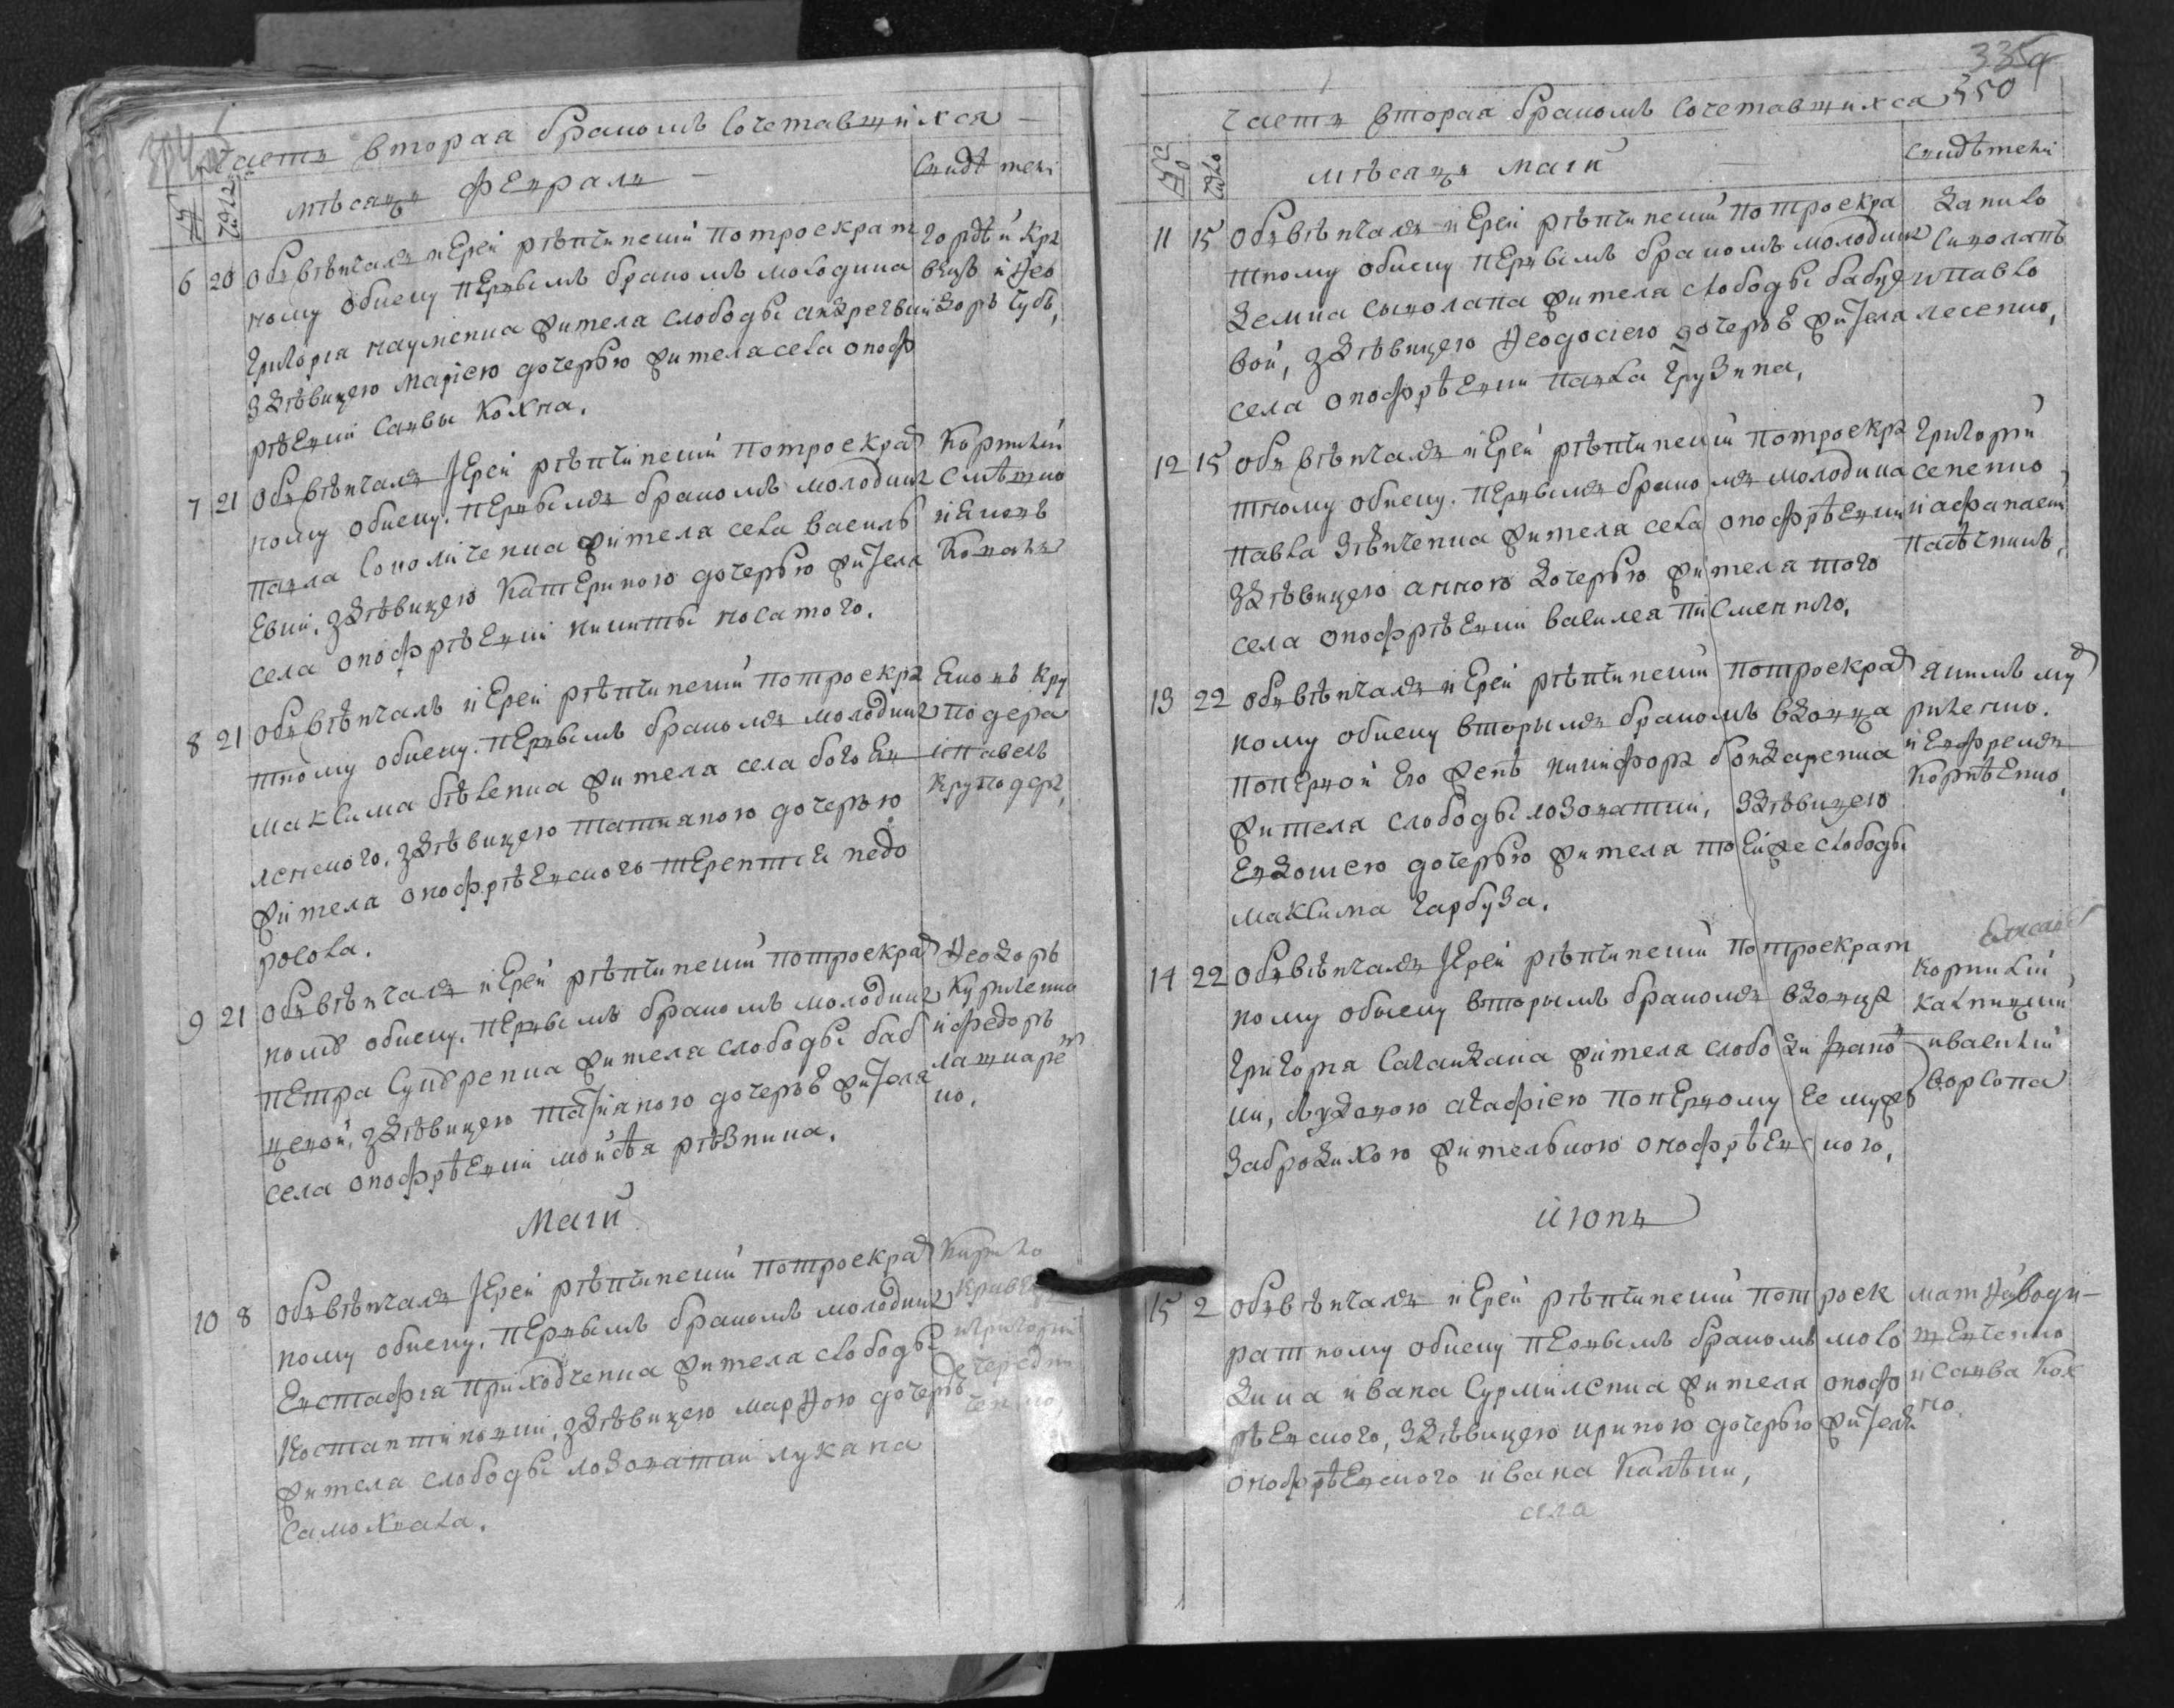 Часть вторая бракомъ сочетавшихся
мѣсяцъ февраль
Свидѣтели
6 20 Обвѣнчалъ иерей рѣпчинский по троекрат
ному обыску первымъ бракомъ молодика
Григория Науменка жителя слободы Андреевки
здѣвицею Мариею дочерью жителя села Оноф
рѣевки Саввы Кохна.
Гордѣй Кра
вецъ и Ѳео
доръ Чубъ,
7 21 Обвѣнчалъ иерей рѣпчинский по троекрад
ному обыску. первымъ бракомъ молодика
Павла Сокольченка жителя села Василь
евки, здѣвицею Катериною дочерью жителя
села Онофрѣевки Никиты Носатого.
Корнилий
Смѣтко
и Яковъ
Коваль
8 21 Обвѣнчалъ иерей рѣпчинский по троекра
тному обыску. первымъ бракомъ молодика
Максима Бѣленка жителя села богояв
ленского, здѣвицею Татияною дочерью
жителя онофрѣевского Терентия Недо
рослa.
Яковъ Кру
подера
и Павелъ
Круподера,
9 21 Обвѣнчалъ иерей рѣпчинский по троекрад
номѣ обыску. первымъ бракомъ молодика
Петра Супрѣнка жителя слободы Баб
цевой, здѣвицею Татияною дочерью жителя
села Онофрѣевки Мойсѣя Рѣзника.
Ѳеодоръ
Куриленко
и Федоръ
но.
Маий
10 8 Обвѣнчалъ иерей рѣпчинский по троекрад
ному обыску. первымъ бракомъ молодика
Евстафия Приходченка жителя слободы
Константиновки, здѣвицею Марѳою дочерью
жителя слободы Лозоватки Лукана
Самохвала.
Кирило
и Григорий
335
550
Часть вторая бракомъ сочетавшихся
мѣсяцъ маий
Свидѣтели
Число
11 15 Обвѣнчалъ иерей рѣпчинский по троекра
тному обыску первымъ бракомъ молодика
Демка Сыволапа жителя слободы Бабце
вой, здѣвицею Ѳеодосиею дочерью жителя
села Онофрѣевки Павла Грузина,
Данило
Сиволапъ
и Павло
Лесенко,
12 15 Обвѣнчалъ иерей рѣпчинский по троекра
тному обыску. первымъ бракомъ молодика
Павла Зѣнченка жителя села Онофрѣевки
здѣвицею Анною дочерью жителя того
села Онофрѣевки Василея Писменного.
Григорий
Сененко
и Афанасий
13 22 Обвѣнчалъ иерей рѣпчинский по троекрад
ному обыску вторымъ бракомъ вдовца
по первой его женѣ Никифора Бондаренка
жителя слободы Лозоватки, здѣвицею
Евдокиею дочерью жителя той же слободы
Максима Гарбуза.
Якимъ Му
риленко.
и Ефремъ
Корнѣенко,
14 22 Обвѣнчалъ иерей рѣпчинский по троекрат
ному обыску вторымъ бракомъ вдовца
Григория Сагайдака жителя слободы Ивано
ки, з вдовою Агафиею по первому ее мужѣ
Забродихою жителькою онофрѣевского,
Корнилий
и Василий
Ворсопа
Июнь
15 2 Обвѣнчалъ иерей рѣпчинский по троек
ратному обыску первымъ бракомъ моло
дика Ивана Сурмиленка жителя оноф
рѣевского, здѣвицею Ириною дочерью жителя
онофрѣевского Ивана Калѣки,
Матѳѣй Води
и Савва Кох
но.